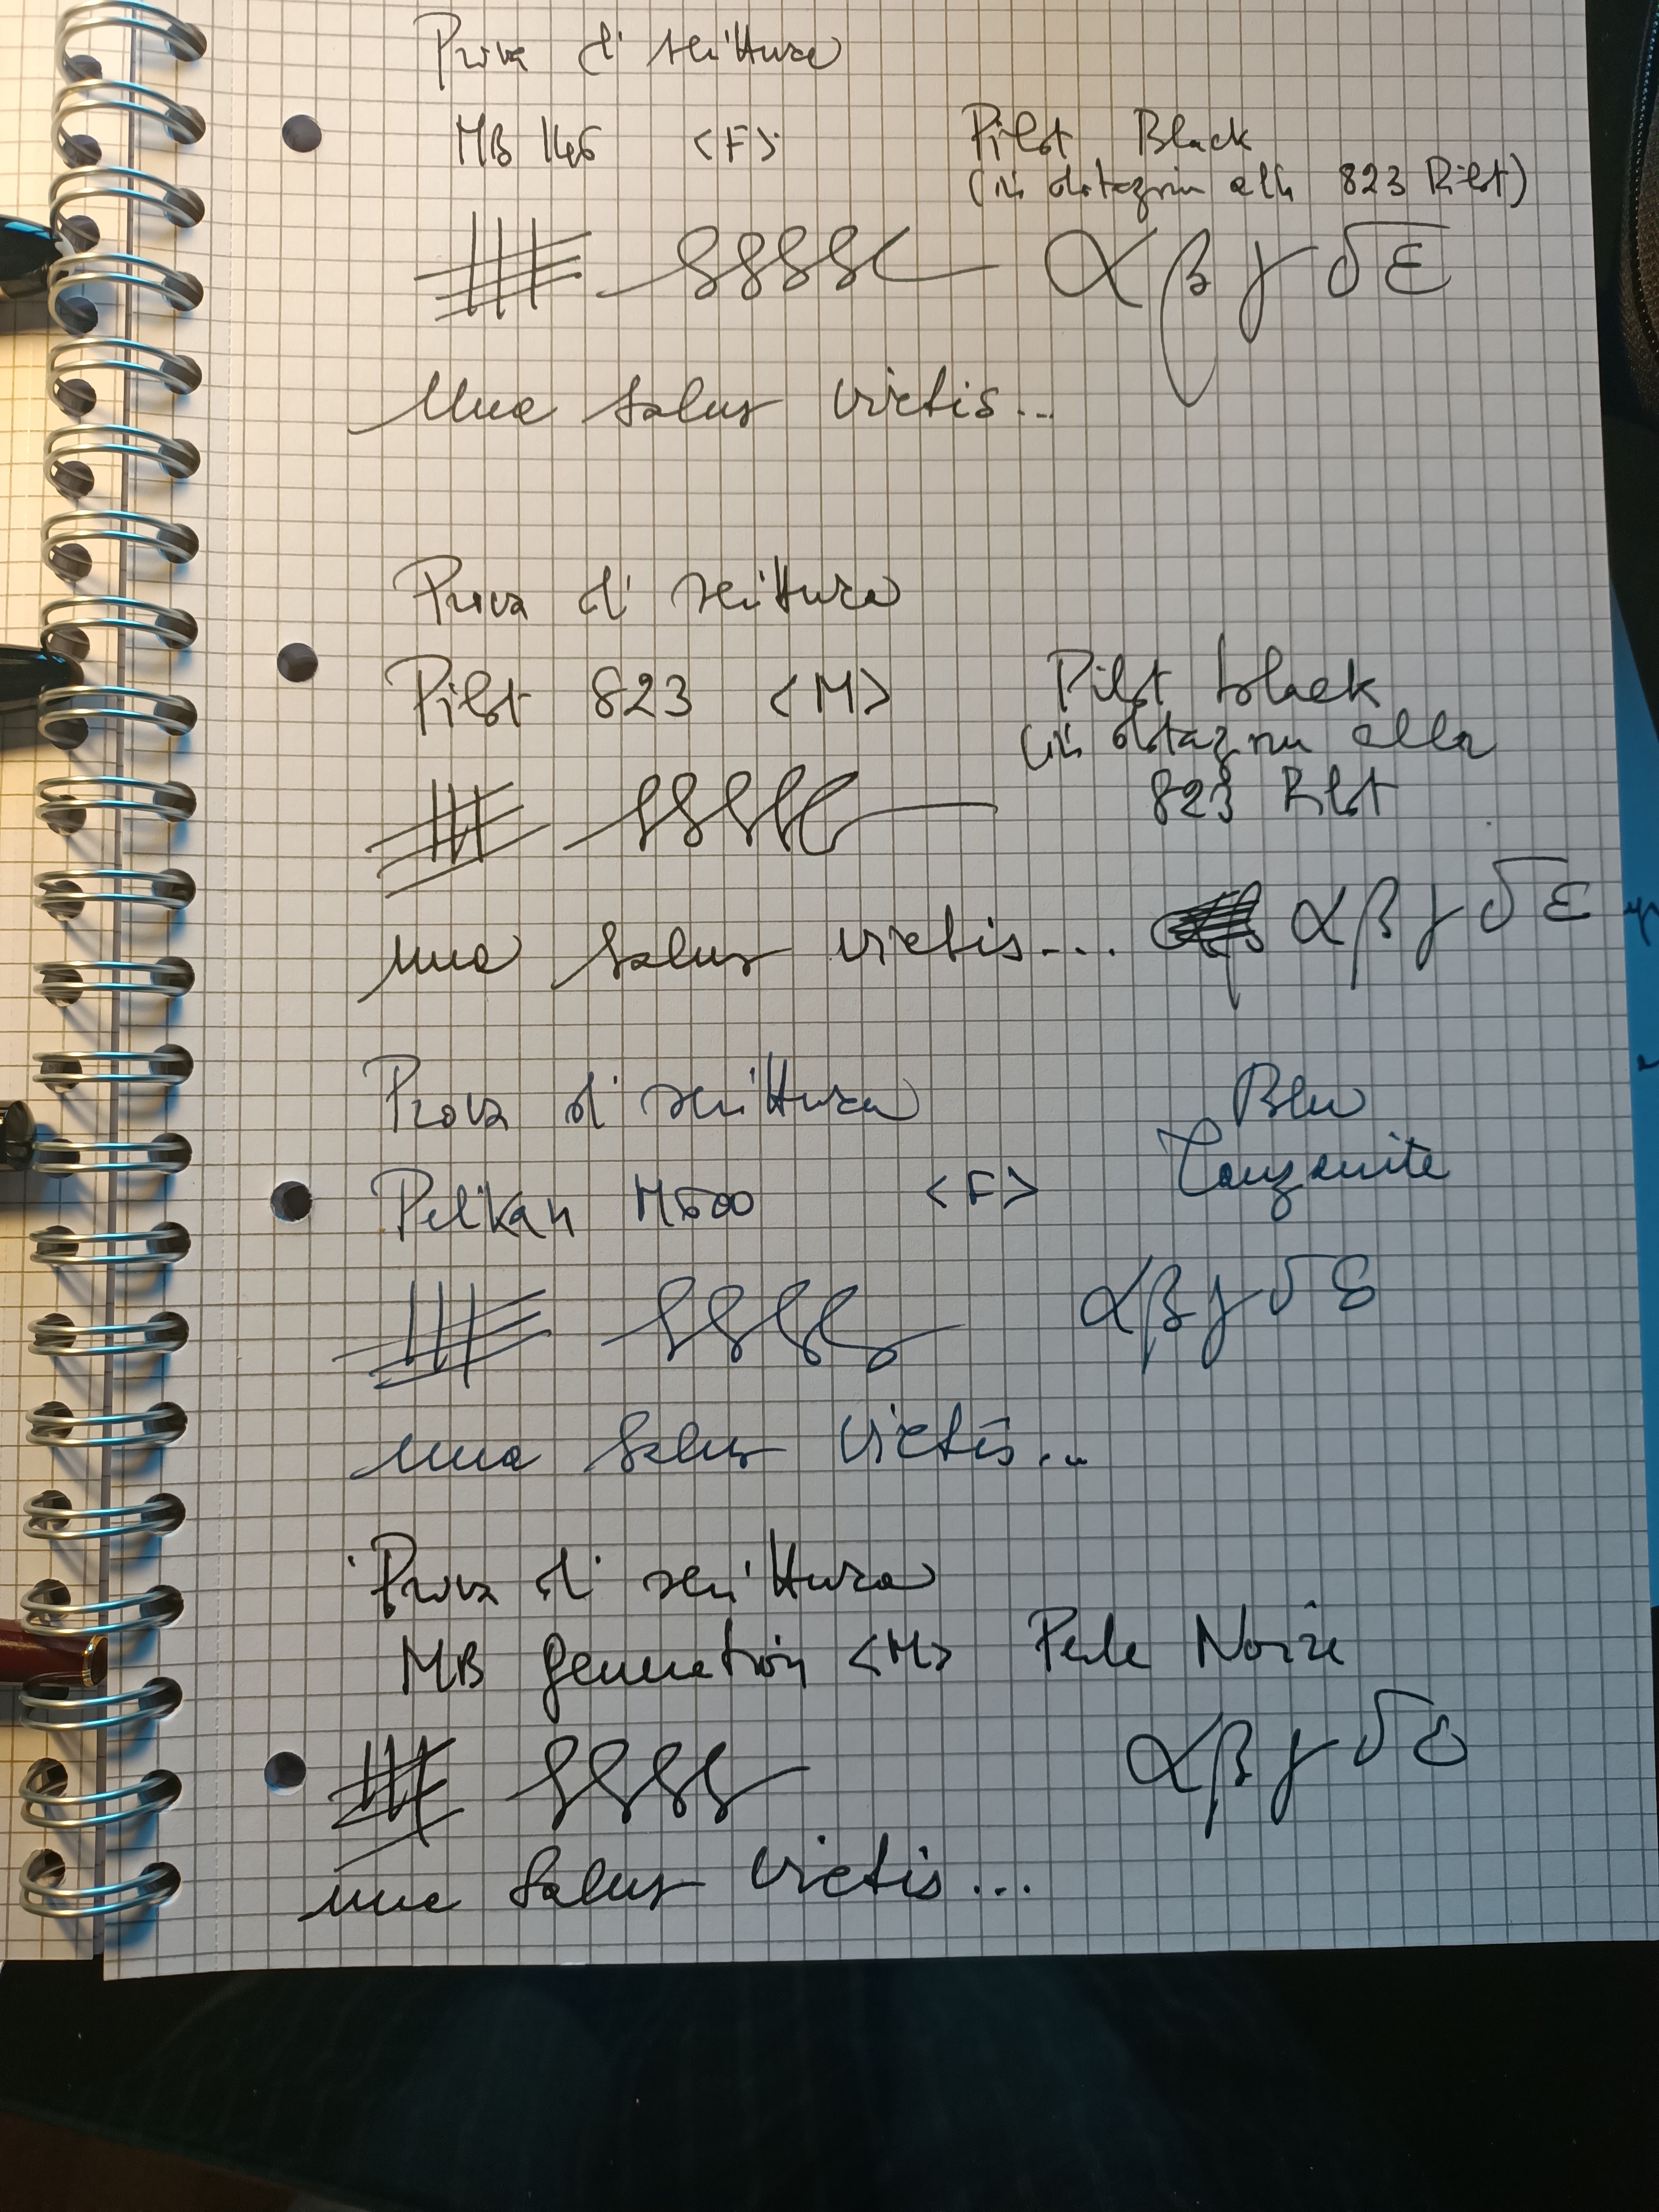 Prova di scrittura
MB 146 <F> Pilot Black
(in dotazione alla 823 Pilot)
α β γ δ ε
Una salus victis...
Prova di scrittura
Pilot 823 <M> Pilot black
(in dotazione alla
823 Pilot
α β γ δ ε
una salus victis...
Prova di scrittura Blu
Pelikan M600 <F> Tanzanite
α β γ δ ε
una salus victis...
Prova di scrittura
MB generation <M> Perle Noire
α β γ δ ε
una salus victis...